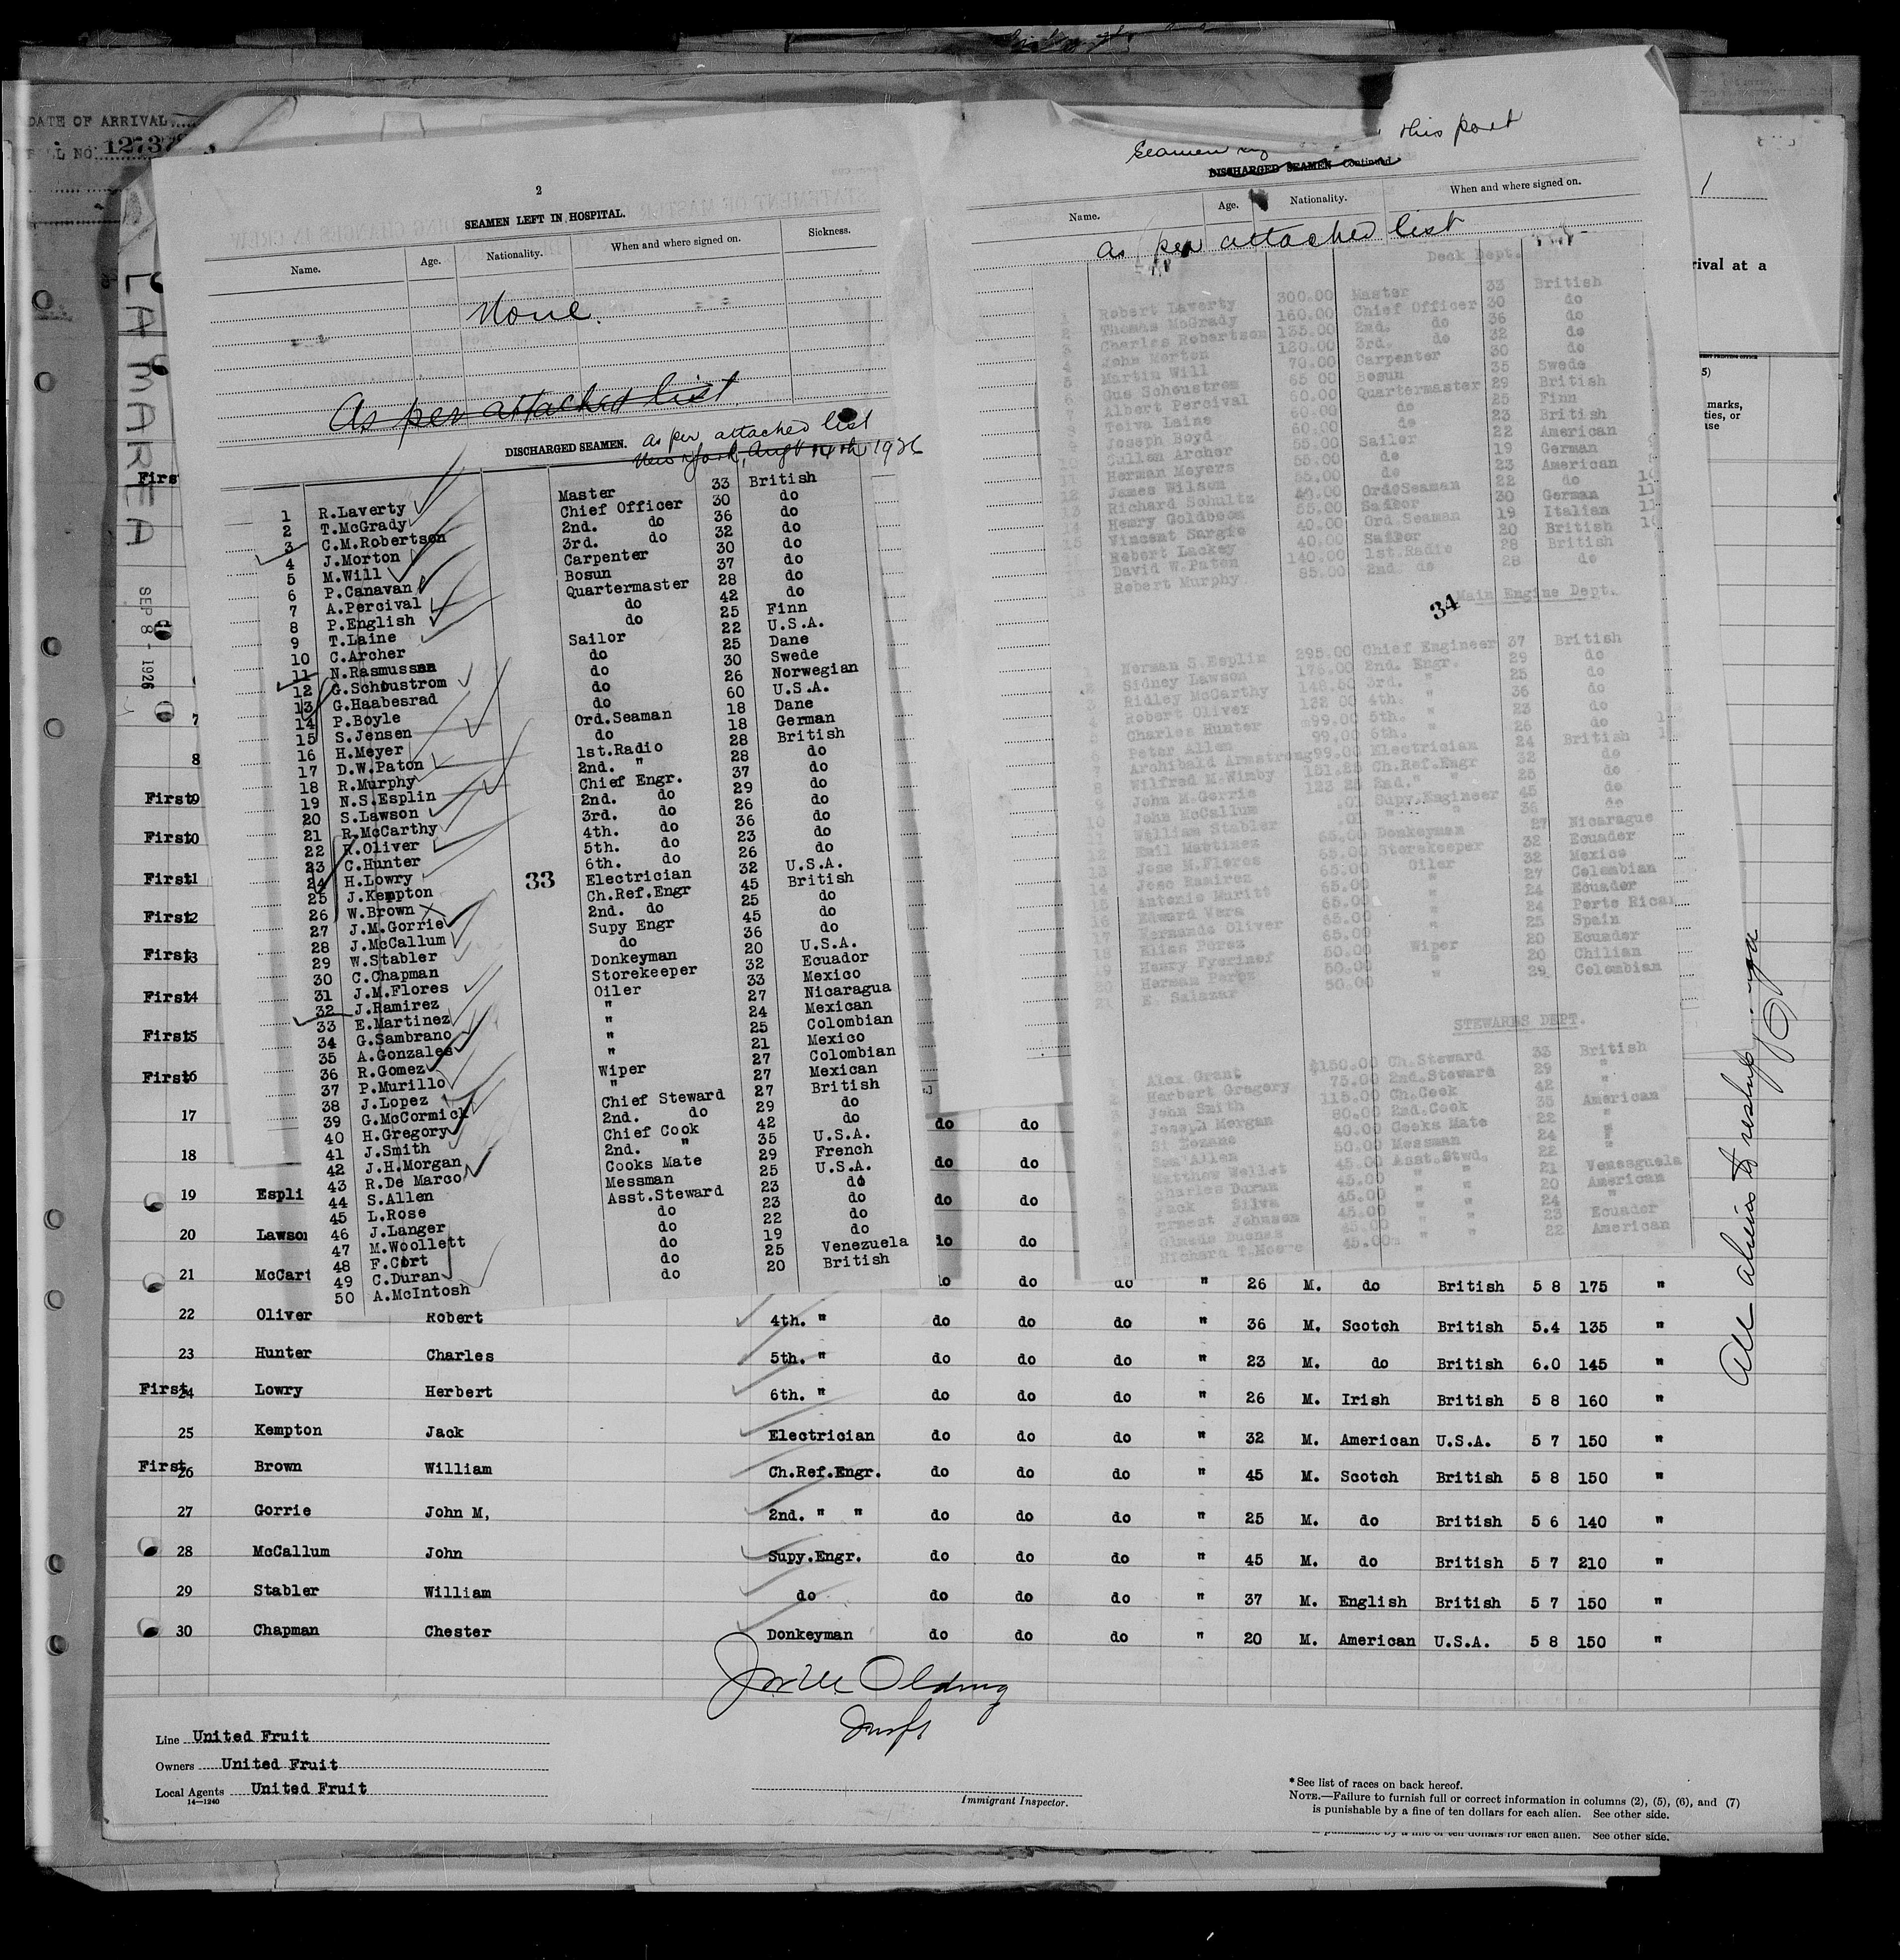 DATE OF ARRIVAL
LA MAREA
SEP 8 - 1926
2
SEAMEN LEFT IN HOSPITAL.
Name. Age. Nationality. When and where signed on. Sickness.
None.
As per attached list.
DISCHARGED SEAMEN. As per attached list
New York, Augt 14th 1926
1 R.Laverty Master 33 British
2 T.McGrady Chief Officer 30 do
3 C.M.Robertson 2nd. do 36 do
4 J.Morton 3rd. do 32 do
5 M.Will Carpenter 30 do
6 P.Canavan Bosun 37 do
7 A.Percival Quartermaster 28 do
8 P.English do 42 do
9 T.Laine do 25 Finn
10 C.Archer Sailor 22 U.S.A.
11 N.Rasmussen do 25 Dane
12 G.Schoustrom do 30 Swede
13 G.Haabesrad do 26 Norwegian
14 P.Boyle do 60 U.S.A.
15 S.Jensen Ord.Seaman 18 Dane
16 H.Meyer do 18 German
17 D.W.Paton 1st.Radio 28 British
18 R.Murphy 2nd. " 28 do
19 N.S.Esplin Chief Engr. 37 do
20 S.Lawson 2nd. do 29 do
21 R.McCarthy 3rd. do 26 do
22 R.Oliver 4th. do 36 do
23 C.Hunter 5th. do 23 do
24 H.Lowry 6th. do 26 do
25 J.Kempton Electrician 32 U.S.A.
26 W.Brown Ch.Ref.Engr 45 British
27 J.M.Gorrie 2nd. do 25 do
28 J.McCallum Supy Engr 45 do
29 W.Stabler do 36 do
30 C.Chapman Donkeyman 20 U.S.A.
31 J.M.Flores Storekeeper 32 Ecuador
32 J.Ramirez Oiler 33 Mexico
33 E.Martinez " 27 Nicaragua
34 G.Sambrano " 24 Mexican
35 A.Gonzales " 25 Colombian
36 R.Gomez " 21 Mexico
37 P.Murillo Wiper 27 Colombian
38 J.Lopez " 27 Mexican
39 G.McCormick Chief Steward 27 British
40 H.Gregory 2nd. do 29 do
41 J.Smith Chief Cook 42 do
42 J.H.Morgan 2nd. " 35 U.S.A.
43 R.De Marco Cooks Mate 29 French
44 S.Allen Messman 25 U.S.A.
45 L.Rose Asst.Steward 23 do
46 J.Langer do 23 do
47 M.Woollett do 22 do
48 F.Cort do 19 do
49 C.Duran do 25 Venezuela
50 A.McIntosh do 20 British
33
Seamen this port
DISCHARGED SEAMEN—Continued
Name. Age. Nationality. When and where signed on.
as per attached list
Deck Dept.
1 Robert Laverty 300.00 Master 33 British
2 Thomas McGrady 160.00 Chief Officer 30 do
3 Charles Robertson 135.00 2nd. do 36 do
4 John Morton 120.00 3rd. do 32 do
5 Martin Will 70.00 Carpenter 30 do
6 Gus Schoustrom 65 00 Bosun 35 Swede
7 Albert Percival 60.00 Quartermaster 29 British
Toiva Laine 60.00 do 25 Finn
Joseph Boyd 60.00 do 23 British
Cullen Archer 55.00 Sailor 22 American
11 Herman Meyers 55.00 do 19 German
12 James Wilson 55.00 do 23 American
13 Richard Schultz 40.00 Ord.Seaman 22 do
14 Henry Goldboom 55.00 Sailor 30 German
15 Vincent Sargie 40.00 Ord.Seaman 19 Italian
Robert Lackey 40.00 Sailor 20 British
David W.Paton 140.00 1st.Radio 28 British
18 Robert Murphy 85.00 2nd do 28 do
34
Main Engine Dept.
Norman S.Esplin 295.00 Chief Engineer 37 British
2 Sidney Lawson 176.00 2nd. Engr. 29 do
Ridley McCarthy 148.50 3rd. " 25 do
4 Robert Oliver 132 00 4th. " 36 do
5 Charles Hunter 99.00 5th. " 23 do
6 Peter Allen 99.00 6th. " 26 do
7 Archibald Armstrong 99.00 Electrician 24 British
8 Wilfred M.Wimby 151.25 Ch.Ref.Engr 32 do
9 John M.Gorrie 123 25 2nd." " 25 do
10 John McCallum .01 Supy.Engineer 45 do
11 William Stabler .01 " " 36 do
12 Emil Martinez 65.00 Donkeyman 27 Nicaragua
13 Jose M.Flores 65.00 Storekeeper 32 Ecuador
14 Jose Ramirez 65.00 Oiler 32 Mexico
15 Antonio Maritt 65.00 " 27 Colombian
16 Edward Vera 65.00 " 24 Ecuador
17 Fernando Oliver 65.00 " 24 Porto Rican
18 Elias Perez 65.00 " 25 Spain
19 Henry 50.00 Wiper 20 Ecuador
20 Herman Perez 50.00 " 20 Chilian
21 E. Salazar 50.00 " 29 Colombian
STEWARDS DEPT.
Alex Grant $150.00 Ch.Steward 33 British
2 Herbert Gregory 75.00 2nd.Steward 29 "
3 John Smith 115.00 Ch.Cook 42 "
Joseph Morgan 80.00 2nd.Cook 35 American
40.00 Cooks Mate 22 "
Sam Allen 50.00 Messman 24 "
Matthew Wollet 45.00 Asst.Stwd. 22 "
Charles Duran 45.00 " " 21 Venesguela
Jack Silva 45.00 " " 20 American
Ernest Johnson 45.00 " " 24 "
Olmedo Duenas 45.00 " " 23 Ecuador
Richard T.Moore 45.00 " " 22 American
rival at a
marks,
All aliens to reship
First
7
8
First 9
First 10
First 11
First 12
First 13
First 14
First 15
First 16
17 do do
18 do do
19 Espli do do
20 Lawson do do
21 McCart do do " 26 M. do British 5 8 175 "
22 Oliver Robert 4th. " do do do " 36 M. Scotch British 5.4 135 "
23 Hunter Charles 5th. " do do do " 23 M. do British 6.0 145 "
First 24 Lowry Herbert 6th. " do do do " 26 M. Irish British 5 8 160 "
25 Kempton Jack Electrician do do do " 32 M. American U.S.A. 5 7 150 "
First 26 Brown William Ch.Ref.Engr. do do do " 45 M. Scotch British 5 8 150 "
27 Gorrie John M, 2nd. " " do do do " 25 M. do British 5 6 140 "
28 McCallum John Supy.Engr. do do do " 45 M. do British 5 7 210 "
29 Stabler William do do do do " 37 M. English British 5 7 150 "
30 Chapman Chester Donkeyman do do do " 20 M. American U.S.A. 5 8 150 "
Olding
Line United Fruit
Owners United Fruit
Local Agents United Fruit
14—1240
Immigrant Inspector.
*See list of races on back hereof.
NOTE.—Failure to furnish full or correct information in columns (2), (5), (6), and (7)
is punishable by a fine of ten dollars for each alien. See other side.
is punishable by a fine of ten dollars for each alien. See other side.